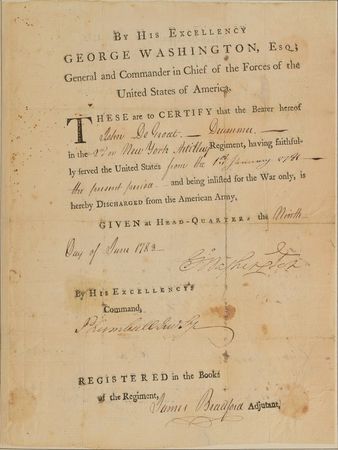 By His Excellency
GEORGE WASHINGTON, Esq;
General and Commander in Chief of the Forces of the
United States of America.
THESE are to CERTIFY that the Bearer hereof
John DeGroat — Drummer —
in the 2d or New York Artillery Regiment, having faithful-
ly served the United States from the 1st January 1780 —
the present period — and being inlisted for the War only, is
hereby DISCHARGED from the American Army.
GIVEN at HEAD-QUARTERS the Ninth
Day of June 1783 —
G Washington
By HIS EXCELLENCY'S
Command,
REGISTERED in the Books
of the Regiment,
James Bradford Adjutant,